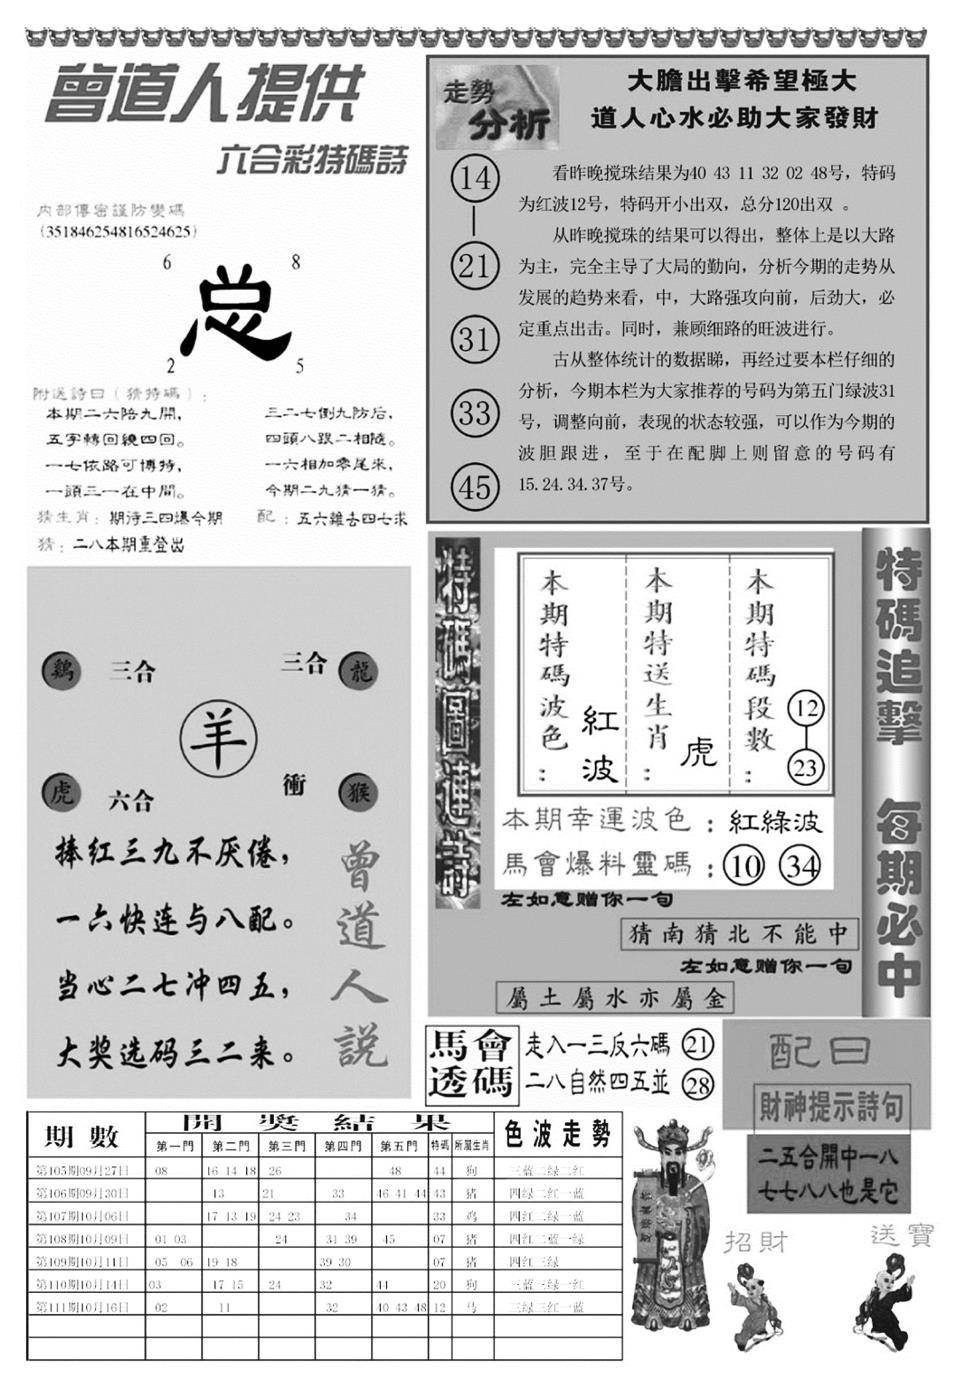 曾道人提供
六合彩特碼詩
內部傳密謹防變碼
(351846254816524625)
6
8
总
2
5
附送詩曰（猜特碼）：
本期二六陪九開，
三二七倒九防后，
五字轉回繞四回。
四頭八跟二相隨。
一七依路可博持，
一六相加零尾來，
一頭三一在中間。
今期二九猜一猜。
猜生肖：期待三四爆今期
配：五六雜去四七求
猜：二八本期重登出
走勢
分析
大膽出擊希望極大
道人心水必助大家發財
14
21
31
33
45
看昨晚搅珠结果为40 43 11 32 02 48号，特码
为红波12号，特码开小出双，总分120出双 。
从昨晚搅珠的结果可以得出，整体上是以大路
为主，完全主导了大局的勤向，分析今期的走势从
发展的趋势来看，中，大路强攻向前，后劲大，必
定重点出击。同时，兼顾细路的旺波进行。
古从整体统计的数据睇，再经过要本栏仔细的
分析，今期本栏为大家推荐的号码为第五门绿波31
号，调整向前，表现的状态较强，可以作为今期的
波胆跟进，至于在配脚上则留意的号码有
15.24.34.37号。
鷄
三合
三合
龍
羊
虎
六合
衝
猴
捧红三九不厌倦，
一六快连与八配。
当心二七冲四五，
大奖选码三二来。
曾道人説
本期特碼波色：
紅波
本期特送生肖：
虎
本期特碼段數：
12
23
本期幸運波色：紅綠波
馬會爆料靈碼：10 34
左如意赠你一句
猜南猜北不能中
左如意赠你一句
屬土屬水亦屬金
特碼追擊
每期必中
馬會
透碼
走入一三反六碼 21
二八自然四五並 28
配曰
財神提示詩句
二五合開中一八
七七八八也是它
招財
送寶
期數 開獎結果 色波走勢
第一門 第二門 第三門 第四門 第五門 特碼 所屬生肖
第105期09月27日 08 16 14 18 26 48 44 狗 三蓝二绿二红
第106期09月30日 13 21 33 46 41 44 43 猪 四绿二红一蓝
第107期10月06日 17 13 19 24 23 34 33 鸡 四红二绿一红
第108期10月09日 01 03 24 31 39 45 07 猪 四红二蓝一绿
第109期10月11日 05 06 19 18 39 30 07 猪 四红三绿
第110期10月14日 03 17 15 24 32 44 20 狗 三蓝三绿一红
第111期10月16日 02 11 32 40 43 48 12 马 三绿三红一蓝